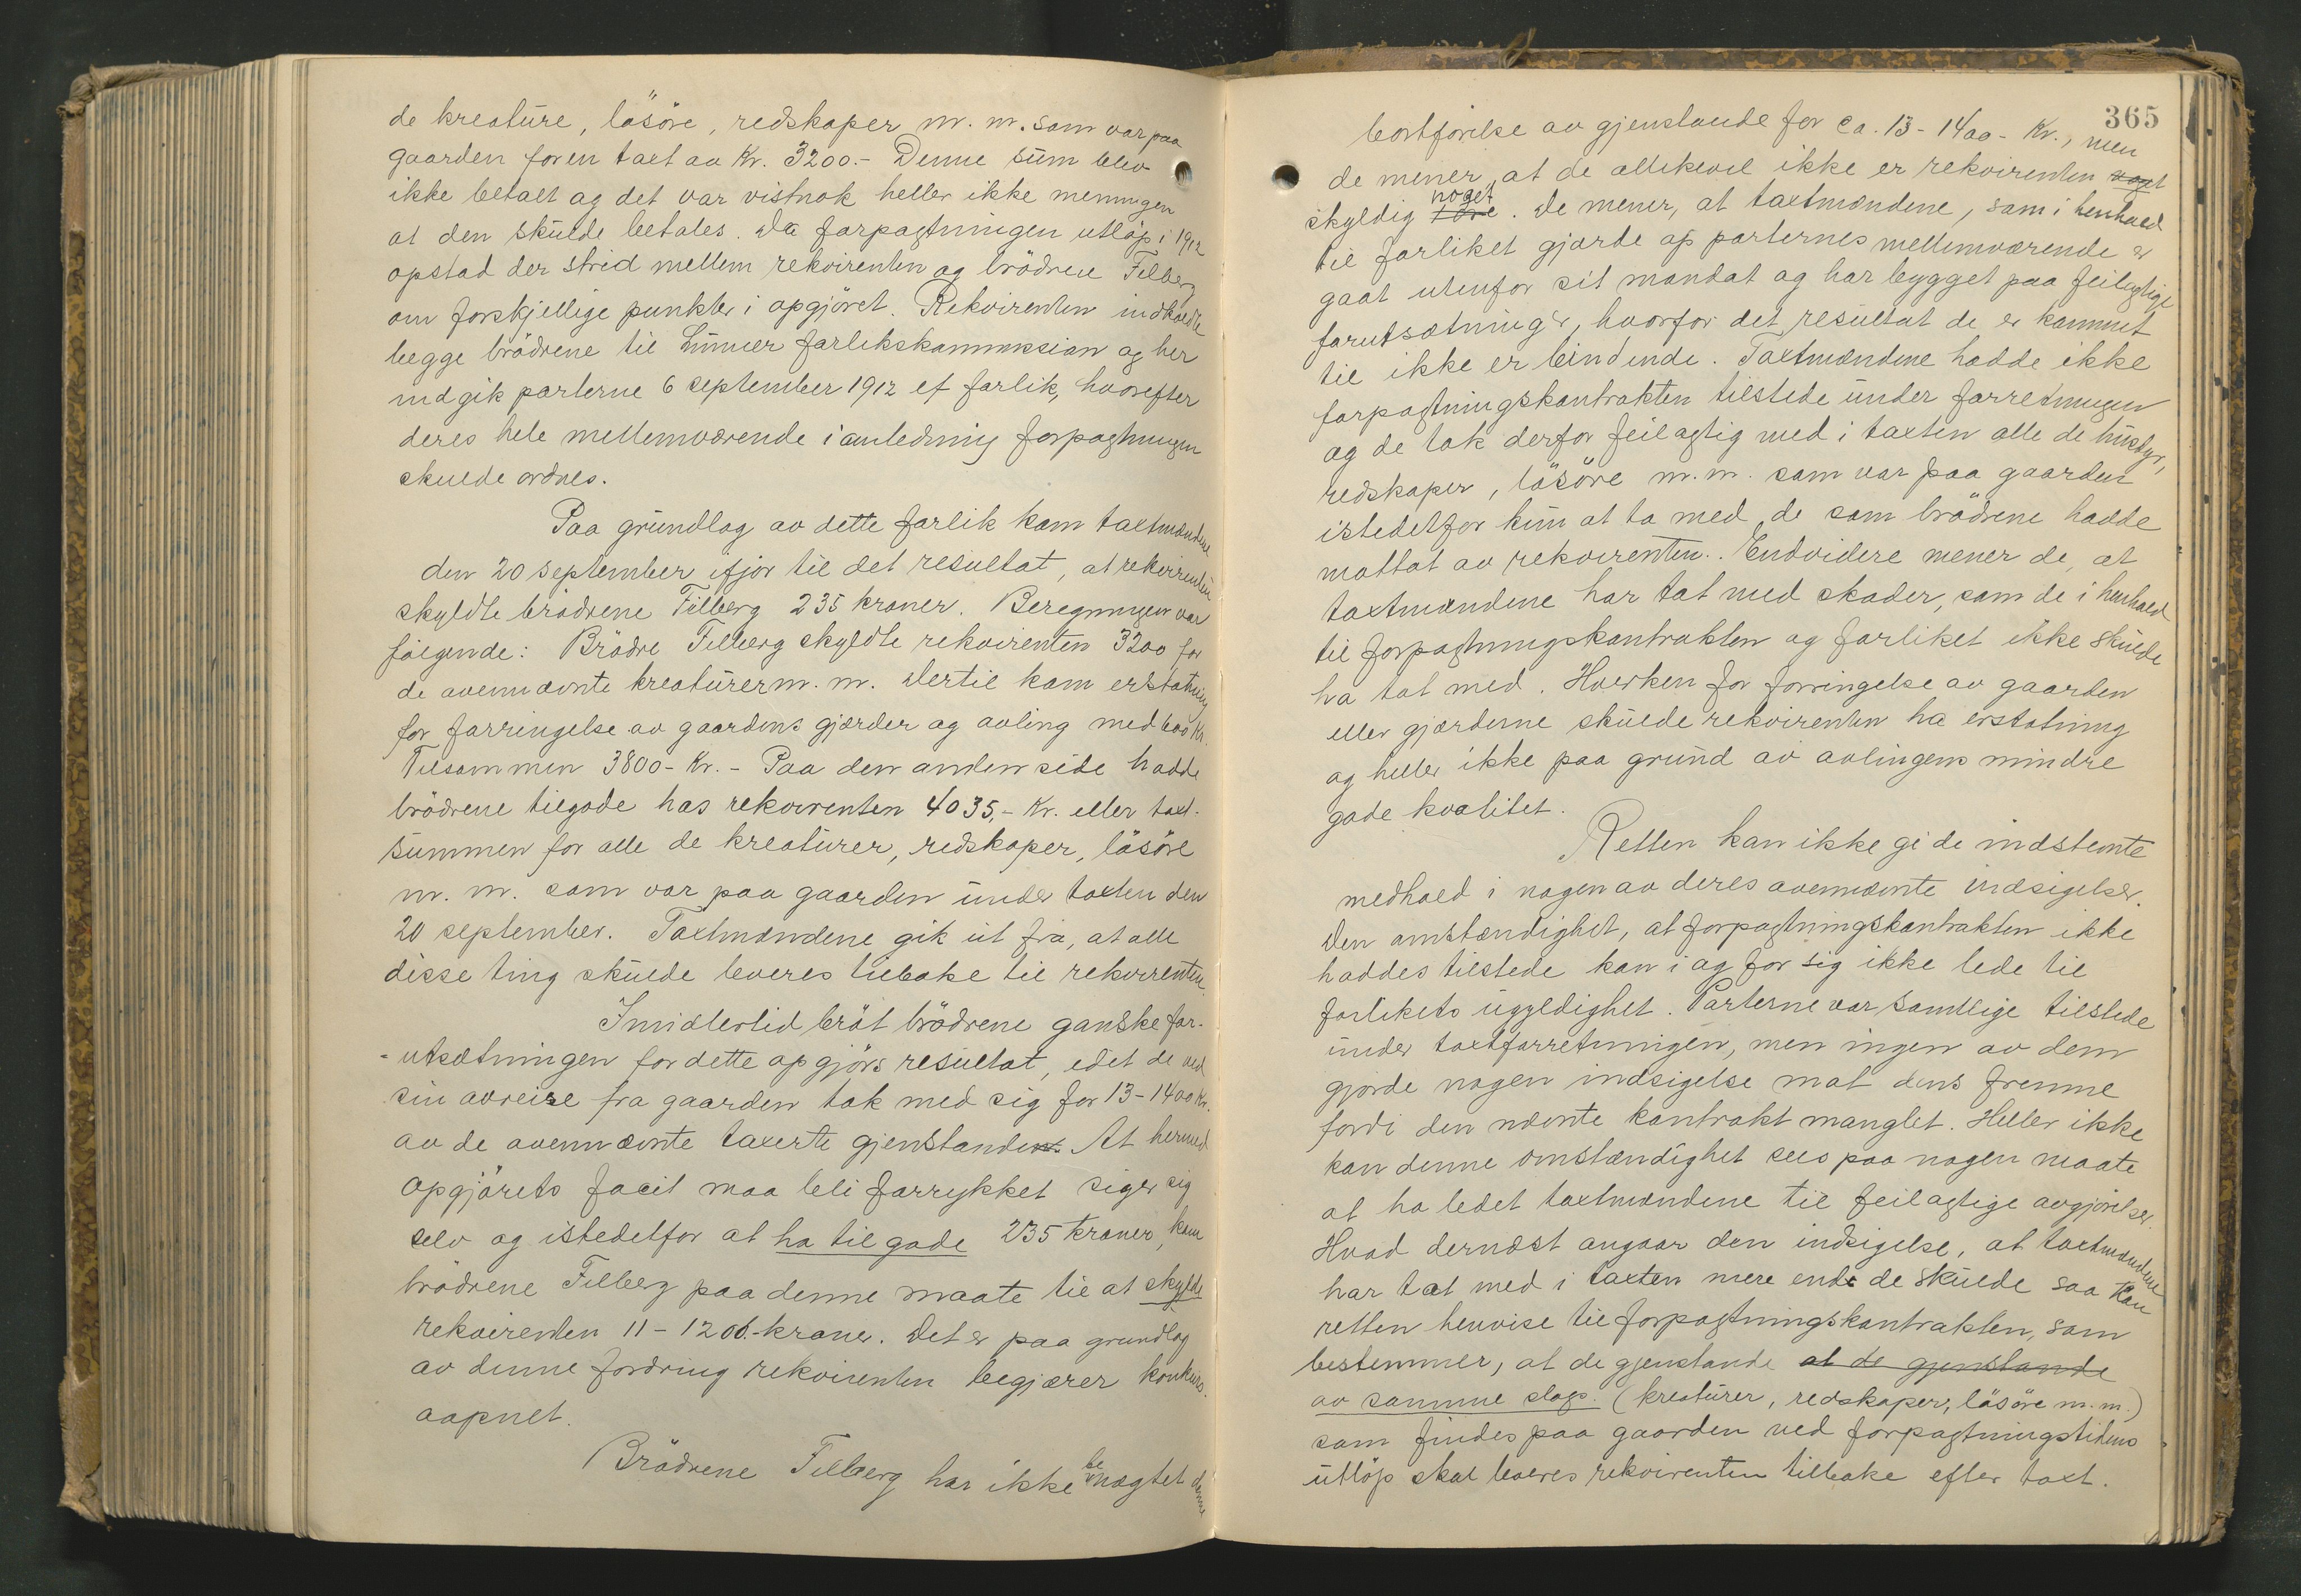 de kreature, løsøre, redskaper m. m. som var paa
gaarden for en taxt av Kr. 3200.- Denne sum blev
ikke betalt og det var vistnok heller ikke meningen
at den skulde betales. Da forpagtningen utløp i 1912
opstod der strid mellem rekvirenten og brödrene Filberg
om forskjellige punkter i opgjöret. Rekvirenten indkaldte
begge brödrene til Lunner forlikskommission og her
indgik parterne 6 september 1912 et forlik, hvorefter
deres hele mellemværende i anledning forpagtningen
skulde ordnes.
Paa grundlag av dette forlik kom taxtmændene
den 20 september ifjor til det resultat, at rekvirenten
skyldte brödrene Filberg 235 kroner. Beregningen var
følgende: Brödre Filberg skyldte rekvirenten 3200 for
de avennævnte kreaturer m. m. Dertil kom erstatning
for forringelse av gaardens gjærder og avling med 600 Kr.
Tilsammen 3800- Kr. - Paa den anden side hadde
brödrene tilgode hos rekvirenten 4035,- Kr. eller taxt-
summen for alle de kreaturer, redskaper, løsøre
m. m. som var paa gaarden under taxten den
20 september. Taxtmændene gik ut fra, at alle
disse ting skulde leveres tilbake til rekvirenten.
Imidlertid brøt brödrene ganske for-
- utsætningen for dette opgjörs resultat, idet de ved
sin avreise fra gaarden tok med sig for 13-1400 Kr.
av de avennævnte taxerte gjenstande. At hermed
opgjörets facit maa bli forrykket siger sig
selv og istedetfor at ha tilgode 235 kroner, kom
brödrene Filberg paa denne maate til at skylde
rekvirenten 11-1200.-kroner. Det er paa grundlag
av denne fordring rekvirenten begjærer konkurs
aapnet.
Brödrene Filberg har ikke benægtet denne
365
bortförelse av gjenstande for ca. 13-1400- Kr., men
de mener, at de allikevel ikke er rekvirenten noget
skyldig noget. De mener, at taxtmændene, som i henhold
til forliket gjorde op parternes mellemværende er
gaat utenfor sit mandat og har bygget paa feilagtige
forutsætninger, hvorfor det resultat de er kommet
til ikke er bindende. Taxtmændene hadde ikke
forpagtningskontrakten tilstede under forretningen
og de tok derfor feilagtig med i taxten alle de husdyr,
redskaper, løsøre m. m. som var paa gaarden
istedetfor kun at ta med de som brödrene hadde
mottat av rekvirenten. Endvidere mener de, at
taxtmændene har tat med skader, som de i henhold
til forpagtningskontrakten og forliket ikke skulde
ha tat med. Hverken for forringelse av gaarden
eller gjærderne skulde rekvirenten ha erstatning
og heller ikke paa grund av avlingens mindre
gode kvalitet.
Retten kan ikke gi de indstevnte
medhold i nogen av deres avennævnte indsigelser.
Den omstændighet, at forpagtningskontrakten ikke
haddes tilstede kan i og for sig ikke lede til
forlikets ugyldighet. Parterne var samtlige tilstede
under taxtforretningen, men ingen av dem
gjorde nogen indsigelse mot dens fremme
fordi den nævnte kontrakt manglet. Heller ikke
kan denne omstændighet sees paa nogen maate
at ha ledet taxtmændene til feilagtige avgjörelser.
Hvad dernæst angaar den indsigelse, at taxtmændene
har tat med i taxten mere end de skulde saa kan
retten henvise til forpagtningskontrakten, som
bestemmer, at de gjenstande at de gjenstande
av samme slags (kreaturer, redskaper, løsøre m. m.)
som findes paa gaarden ved forpagtningstidens
utløp skal leveres rekvirenten tilbake efter taxt.